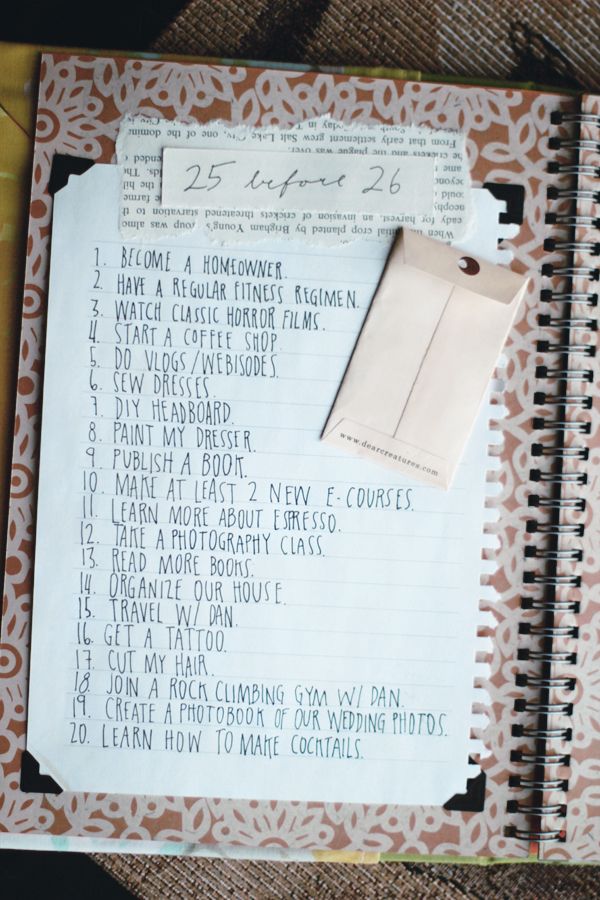 25 before 26
When the initial crop planted by Brigham Young's group was
for harvest, an invasion of crickets threatened starvation to
crickets and the plague was over.
From that early settlement grew Salt Lake City, one of the
1. BECOME A HOMEOWNER.
2. HAVE A REGULAR FITNESS REGIMEN.
3. WATCH CLASSIC HORROR FILMS.
4. START A COFFEE SHOP.
5. DO VLOGS/WEBISODES.
6. SEW DRESSES.
7. DIY HEADBOARD.
8. PAINT MY DRESSER.
9. PUBLISH A BOOK.
10. MAKE AT LEAST 2 NEW E-COURSES.
11. LEARN MORE ABOUT ESPRESSO.
12. TAKE A PHOTOGRAPHY CLASS.
13. READ MORE BOOKS.
14. ORGANIZE OUR HOUSE.
15. TRAVEL W/ DAN.
16. GET A TATTOO.
17. CUT MY HAIR.
18. JOIN A ROCK CLIMBING GYM W/ DAN.
19. CREATE A PHOTOBOOK OF OUR WEDDING PHOTOS.
20. LEARN HOW TO MAKE COCKTAILS.
www.dearcreatures.com